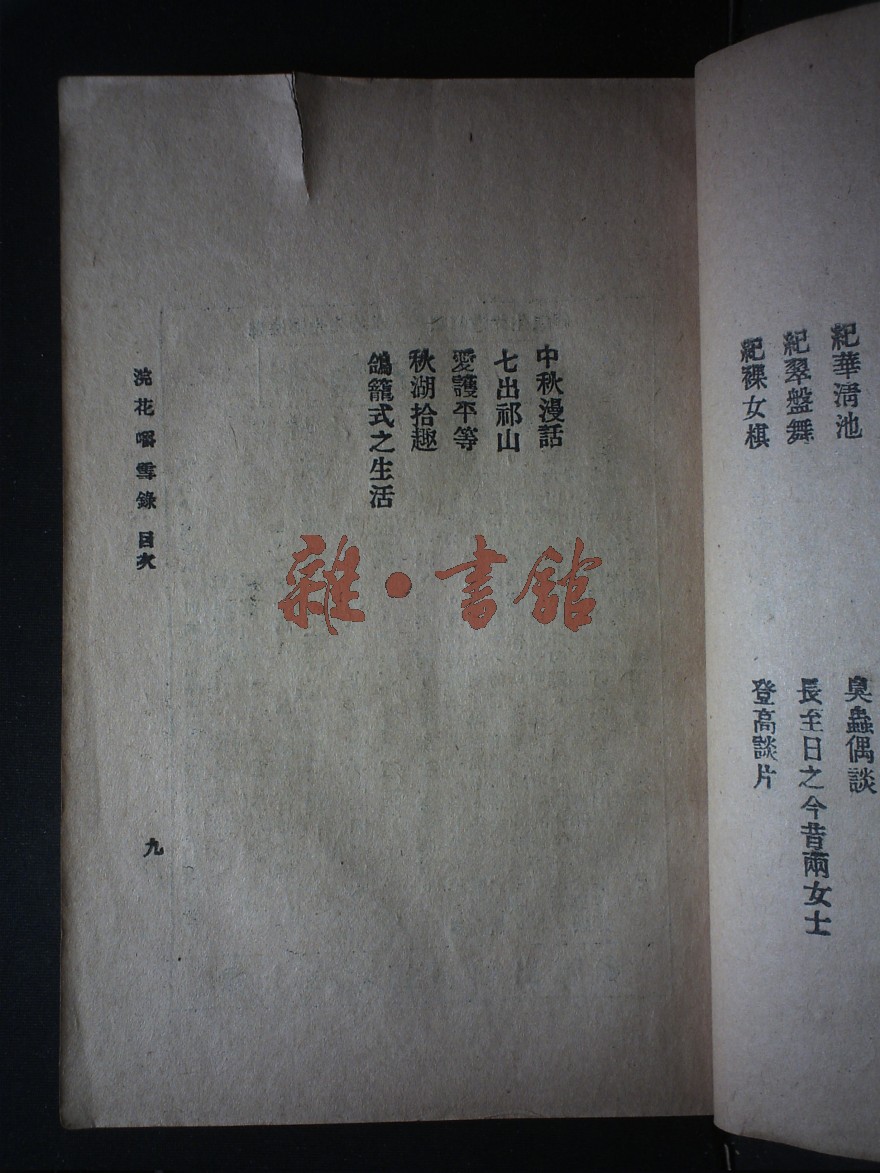 紀華清池
紀翠盤舞
紀裸女棋
臭蟲偶談
長至日之今昔兩女士
登高談片
中秋漫話
七出祁山
愛護平等
秋湖拾趣
鴿籠式之生活
浣花嚼雪錄 目次
九
雜·書館